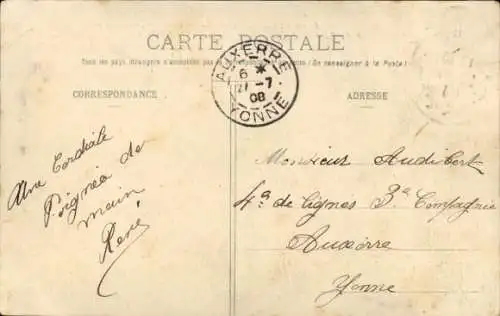 CARTE POSTALE
Tous les pays étrangers n'acceptent pas la Correspondance (Se renseigner à la Poste)
CORRESPONDANCE
ADRESSE
AUXERRE
6 *
21 - 7
08
YONNE
Une Cordiale
Poignée de
main
René
Monsieur Audibert
4e de lignes 3e Compagnie
Auxerre
Yonne